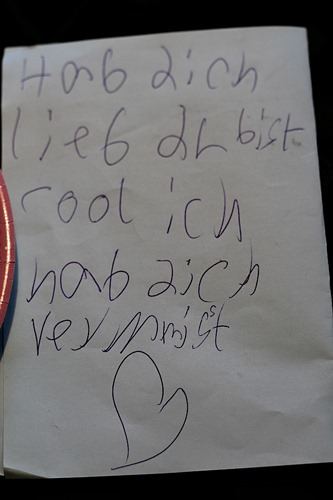 Hab dich
lieb du bist
cool ich
hab dich
vermisst